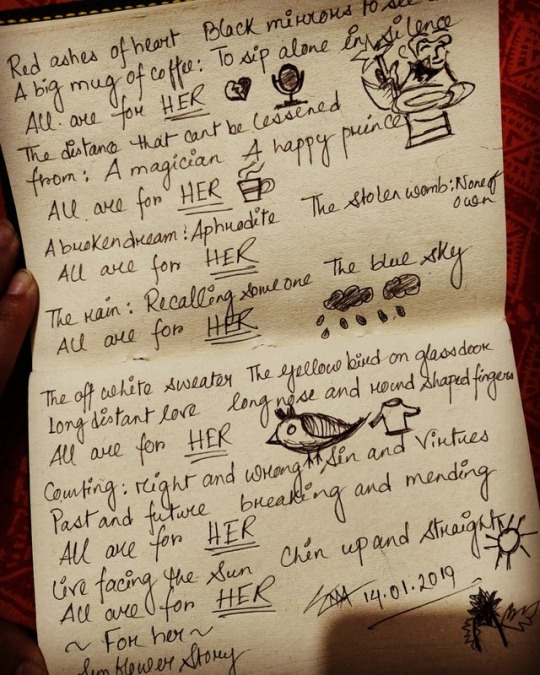 Red ashes of heart Black mirrors to see
A big mug of coffee: To sip alone in silence
All are for HER
The distance that can't be lessened
from: A magician A happy prince
All are for HER
A broken dream: Aphrodite The stolen womb: None of own
All are for HER
The rain: Recalling someone The blue sky
All are for HER
The off white sweater The yellow bird on glassdoor
Long distant love long nose and round shaped fingers
All are for HER
Counting: right and wrong Sin and Virtues
Past and future breaking and mending
All are for HER
Live facing the Sun Chin up and straight
All are for HER
14.01.2019
~ For her ~
Sunflower Story